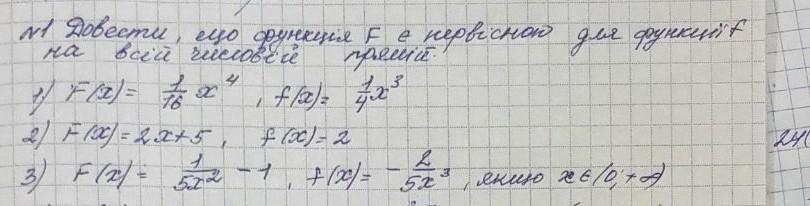 №1 Довести, що функція F є первісною для функції f
на всій числовій прямій.
1) F(x) = 1/16 x⁴, f(x) = 1/4 x³
2) F(x) = 2x+5, f(x) = 2
3) F(x) = 1/5x² - 1, f(x) = -2/5x³, якщо x∈(0;+∞)
24(